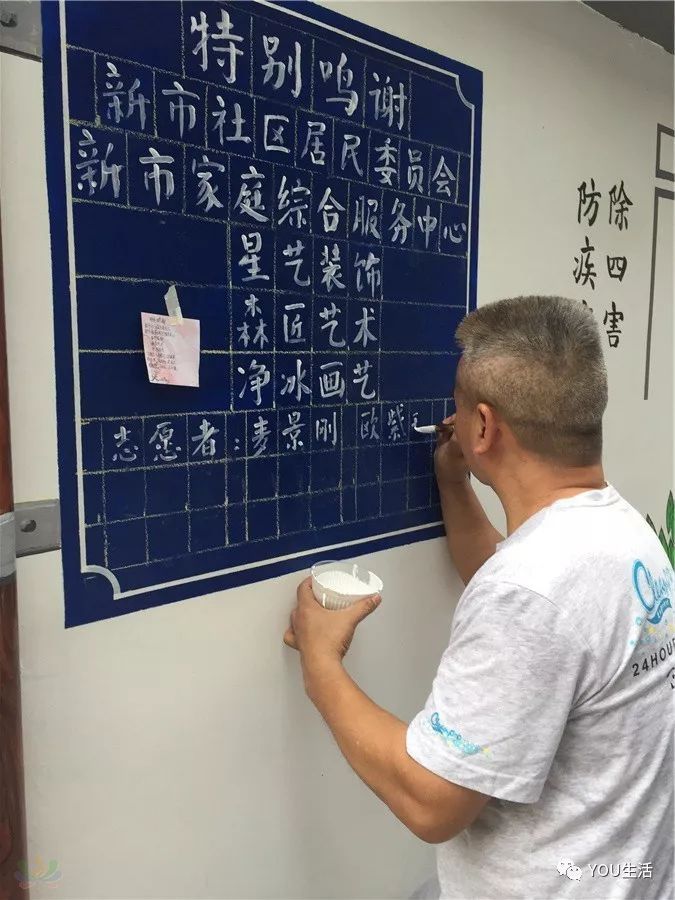 特别鸣谢
新市社区居民委员会
新市家庭综合服务中心
星艺装饰
森匠艺术
净冰画艺
志愿者：麦景刚 欧紫
除四害
防疾
24HOUR
YOU生活